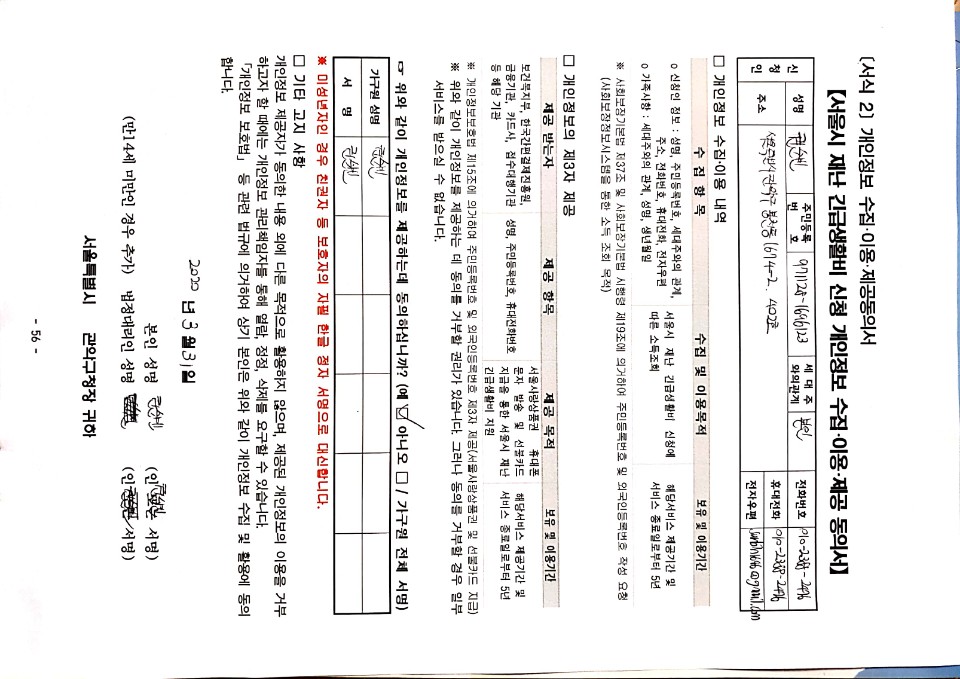 〔서식 2〕 개인정보 수집·이용·제공동의서
【서울시 재난 긴급생활비 신청 개인정보 수집·이용·제공 동의서】
신청인
성명
주민등록번호
971128-1696123
세대주와의관계
본인
전화번호
010-2388-2496
주소
402호
휴대전화
010-2388-2496
전자우편
□ 개인정보 수집·이용 내역
수 집 항 목
수집 및 이용목적
보유 및 이용기간
o 신청인 정보 : 성명, 주민등록번호, 세대주와의 관계,
주소, 전화번호, 휴대전화, 전자우편
o 가족사항 : 세대주와의 관계, 성명, 생년월일
서울시 재난 긴급생활비 신청에
따른 소득조회
해당서비스 제공기간 및
서비스 종료일로부터 5년
※ 사회보장기본법 제37조 및 사회보장기본법 시행령 제19조에 의거하여 주민등록번호 및 외국인등록번호 작성 요청
(사회보장정보시스템을 통한 소득 조회 목적)
□ 개인정보의 제3자 제공
제공 받는자
제공 항목
제공 목적
보유 및 이용기간
보건복지부, 한국간편결제진흥원,
금융기관, 카드사, 접수대행기관
등 해당 기관
성명, 주민등록번호, 휴대전화번호
서울사랑상품권 휴대폰
문자 발송 및 선불카드
지급을 통한 서울시 재난
긴급생활비 지원
해당서비스 제공기간 및
서비스 종료일로부터 5년
※ 개인정보보호법 제15조에 의거하여 주민등록번호 및 외국인등록번호 제3자 제공(서울사랑상품권 및 선불카드 지급)
※ 위와 같이 개인정보를 제공하는 데 동의를 거부할 권리가 있습니다. 그러나 동의를 거부할 경우 일부
서비스를 받으실 수 없습니다.
☞ 위와 같이 개인정보를 제공하는데 동의하십니까? (예 ☑ 아니오 □ / 가구원 전체 서명)
가구원 성명
서 명
※ 미성년자인 경우 친권자 등 보호자의 자필 한글 정자 서명으로 대신합니다.
□ 기타 고지 사항
개인정보 제공자가 동의한 내용 외에 다른 목적으로 활용하지 않으며, 제공된 개인정보의 이용을 거부
하고자 할 때에는 개인정보 관리책임자를 통해 열람, 정정, 삭제를 요구할 수 있습니다.
「개인정보 보호법」 등 관련 법규에 의거하여 상기 본인은 위와 같이 개인정보 수집 및 활용에 동의
합니다.
2020 년 3 월 31 일
본인 성명
(인 또는 서명)
(만14세 미만인 경우 추가) 법정대리인 성명
(인 또는 서명)
서울특별시 관악구청장 귀하
- 56 -